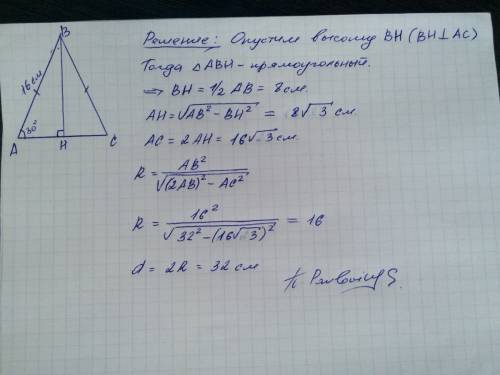 B
16 см
30°
A
H
C
Решение: Опустим высоту BH (BH⊥AC)
Тогда △ABH - прямоугольный.
⇒ BH = 1/2 AB = 8 см.
AH = √(AB² - BH²) = 8√3 см.
AC = 2AH = 16√3 см.
R = AB² / √((2AB)² - AC²)
R = 16² / √(32² - (16√3)²) = 16
d = 2R = 32 см